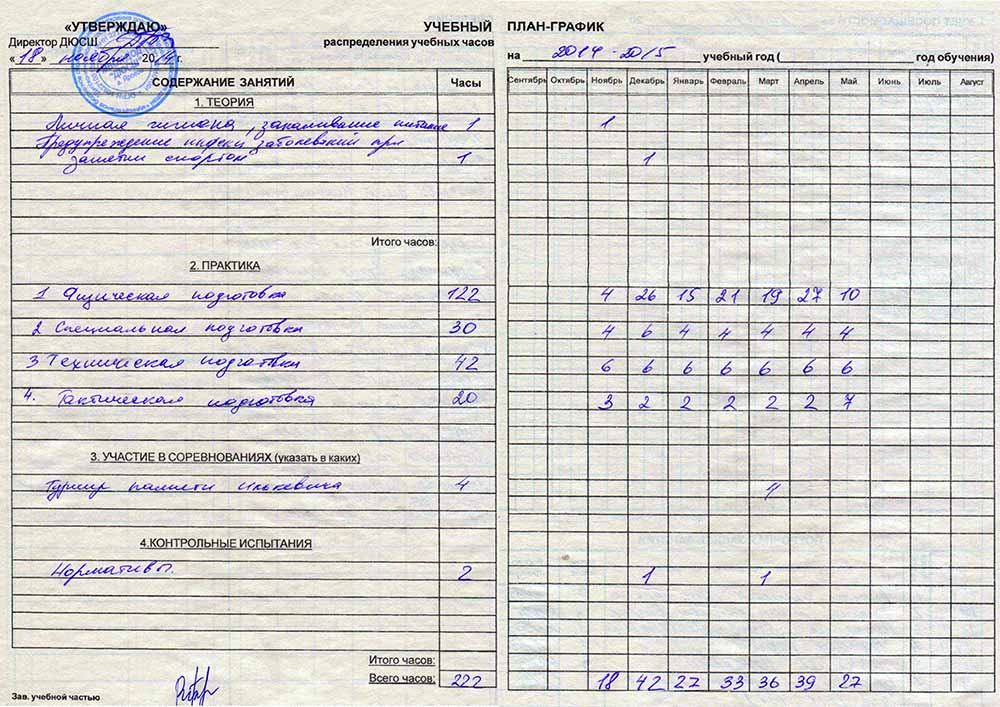 «УТВЕРЖДАЮ»
Директор ДЮСШ
«18» ноября 2014 г.
УЧЕБНЫЙ ПЛАН-ГРАФИК
распределения учебных часов
на 2014-2015 учебный год ( год обучения)
СОДЕРЖАНИЕ ЗАНЯТИЙ Часы Сентябрь Октябрь Ноябрь Декабрь Январь Февраль Март Апрель Май Июнь Июль Август
1. ТЕОРИЯ
Личная гигиена, закаливание питание 1 1
Предупреждение инфекц заболеваний при
занятии спортом 1 1
Итого часов:
2. ПРАКТИКА
1 Физическая подготовка 122 4 26 15 21 19 27 10
2 Специальная подготовка 30 4 6 4 4 4 4 4
3 Техническая подготовка 42 6 6 6 6 6 6 6
4. Тактическая подготовка 20 3 2 2 2 2 2 7
3. УЧАСТИЕ В СОРЕВНОВАНИЯХ (указать в каких)
Турнир памяти Илькевича 4 4
4.КОНТРОЛЬНЫЕ ИСПЫТАНИЯ
Нормативы. 2 1 1
Итого часов:
Всего часов: 222 18 42 27 33 36 39 27
Зав. учебной частью